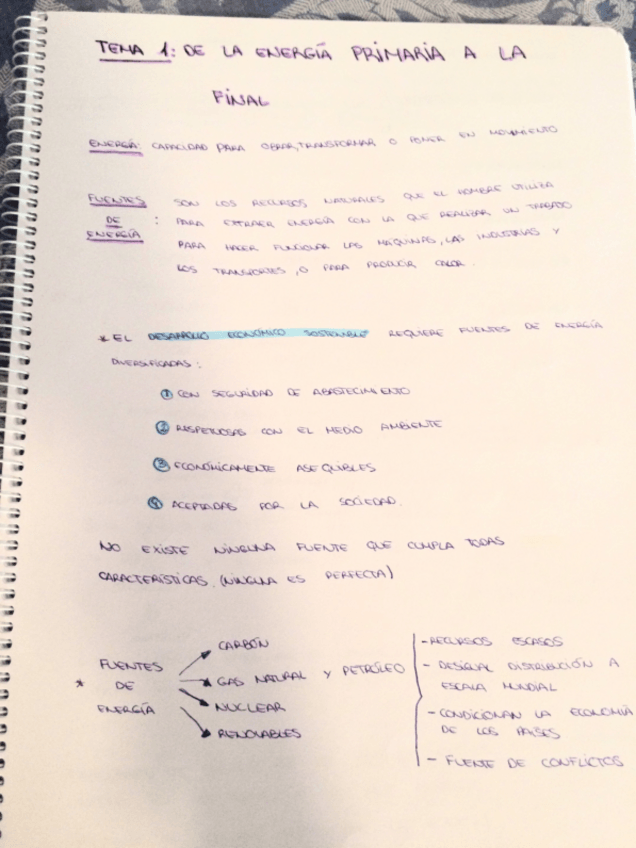 TEMA 1: DE LA ENERGÍA PRIMARIA A LA
FINAL
ENERGÍA: CAPACIDAD PARA OBRAR, TRANSFORMAR O PONER EN MOVIMIENTO
FUENTES DE ENERGÍA :
SON LOS RECURSOS NATURALES QUE EL HOMBRE UTILIZA
PARA EXTRAER ENERGÍA CON LA QUE REALIZAR UN TRABAJO
PARA HACER FUNCIONAR LAS MÁQUINAS, LAS INDUSTRIAS Y
LOS TRANSPORTES, O PARA PRODUCIR CALOR.
* EL DESARROLLO ECONÓMICO SOSTENIBLE REQUIERE FUENTES DE ENERGÍA
DIVERSIFICADAS:
① CON SEGURIDAD DE ABASTECIMIENTO
② RESPETUOSAS CON EL MEDIO AMBIENTE
③ ECONÓMICAMENTE ASEQUIBLES
④ ACEPTADAS POR LA SOCIEDAD.
NO EXISTE NINGUNA FUENTE QUE CUMPLA TODAS
CARACTERÍSTICAS. (NINGUNA ES PERFECTA)
* FUENTES DE ENERGÍA
CARBÓN
GAS NATURAL Y PETRÓLEO
NUCLEAR
RENOVABLES
- RECURSOS ESCASOS
- DESIGUAL DISTRIBUCIÓN A
ESCALA MUNDIAL
- CONDICIONAN LA ECONOMÍA
DE LOS PAÍSES
- FUENTE DE CONFLICTOS